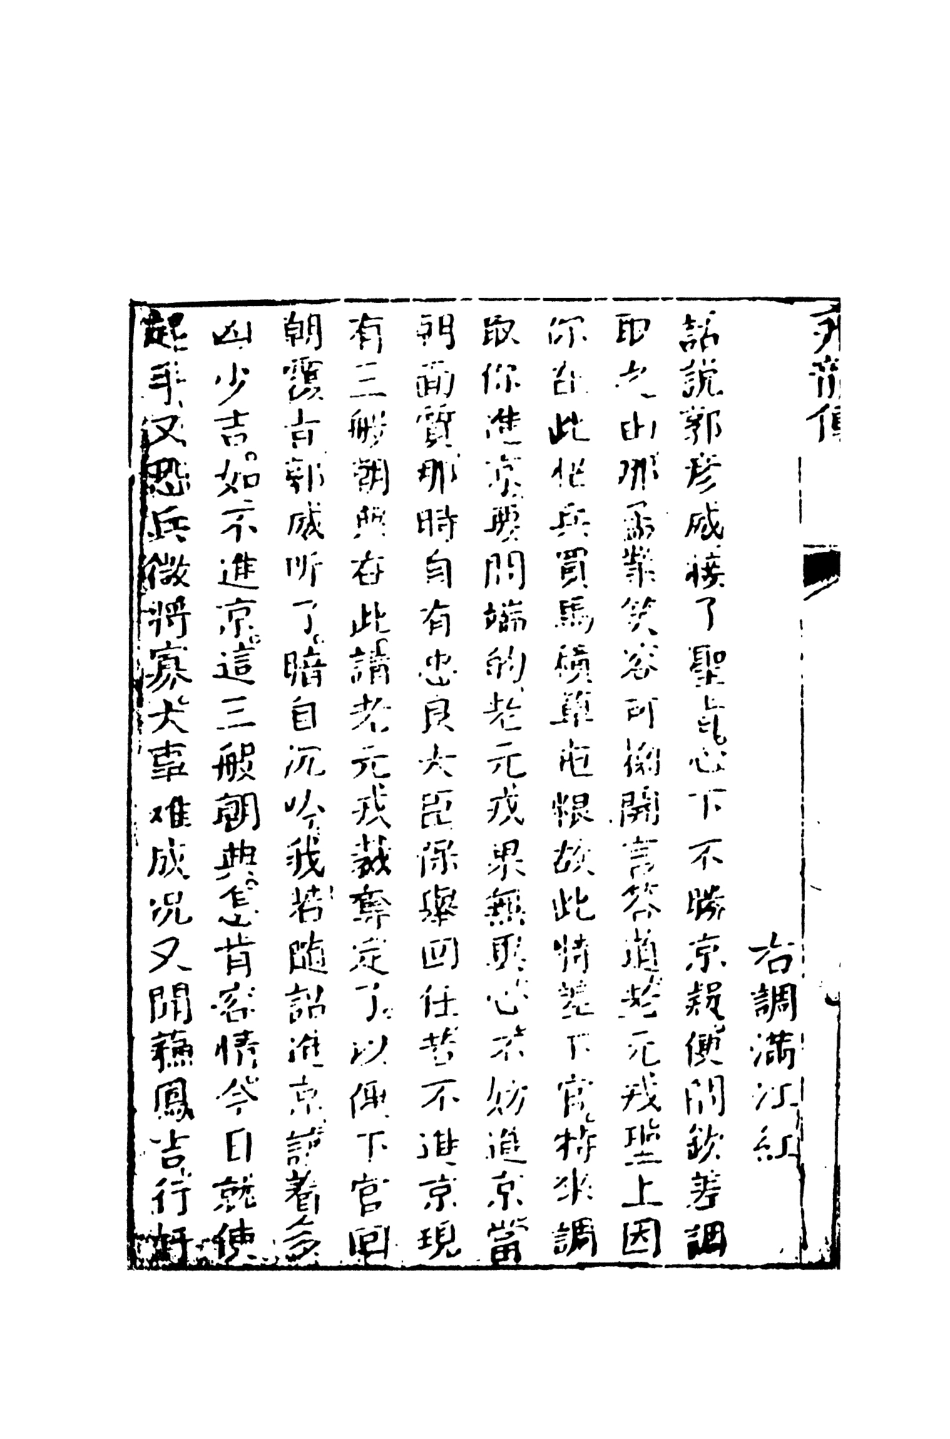 右調滿江紅
話說郭彥威接了聖旨心下不勝京疑便問欽差調
取之由那孟業笑容可掬開言答道老元戎聖上因
你在此招兵買馬積草屯糧故此特差下官特來調
取你進京要問端的老元戎果無異心不妨進京當
朝面質那時自有忠良大臣保舉回任若不進京現
有三般朝典在此請老元戎裁奪定了以便下官回
朝覆旨郭威听了暗自沉吟我若隨詔進京諒着多
凶少吉如不進京這三般朝典怎肯容情今日就使
起手又恐兵微將寡大事难成况又聞蘇鳳吉行奸